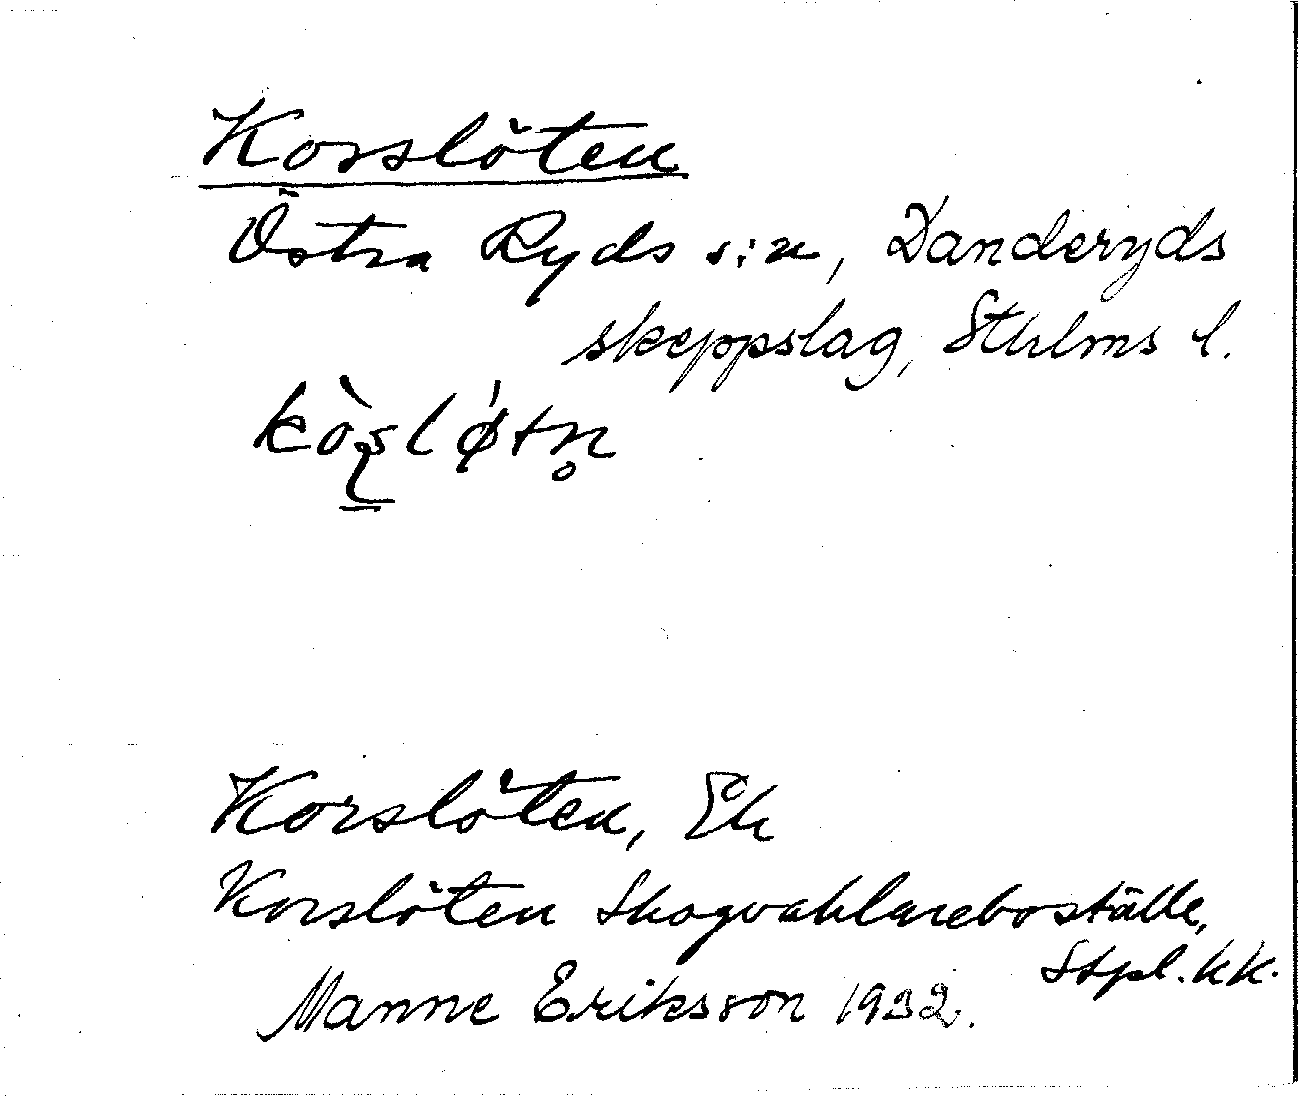 Korslöten
Östra Ryds s:n, Danderyds
skeppslag, Sthlms l.
kòʂløtn̥
Korslöten, Ek
Korslöten Skogvaktareboställe,
Stpl. kk.
Manne Eriksson 1932.